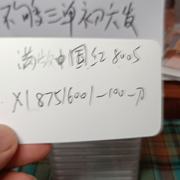 不
三单初六发
中国红8005
X187516001-100-刀